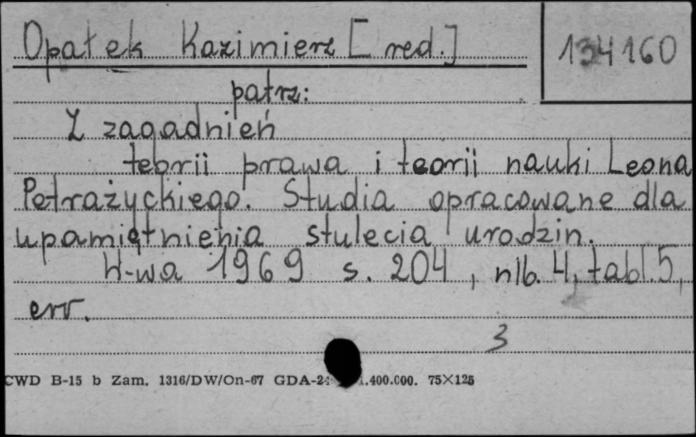 Opałek Kazimierz [red.]
134160
patrz:
Z zagadnień
teorii prawa i teorii nauki Leona
Petrażyckiego. Studia opracowane dla
upamiętnienia stulecia urodzin.
W-wa 1969 s. 204, nlb. 4, tabl. 5,
err.
3
CWD B-15 b Zam. 1316/DW/On-67 GDA-24 1.400.000. 75×125